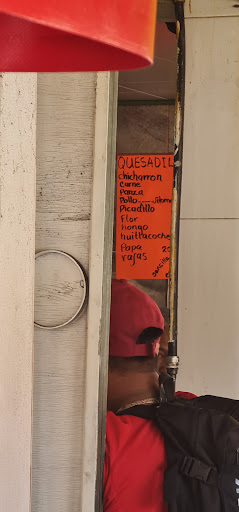 QUESADIL
chicharron
carne
Panza
Pollo
Picadillo
Flor
hongo
huitlacoche
Papa
rajas